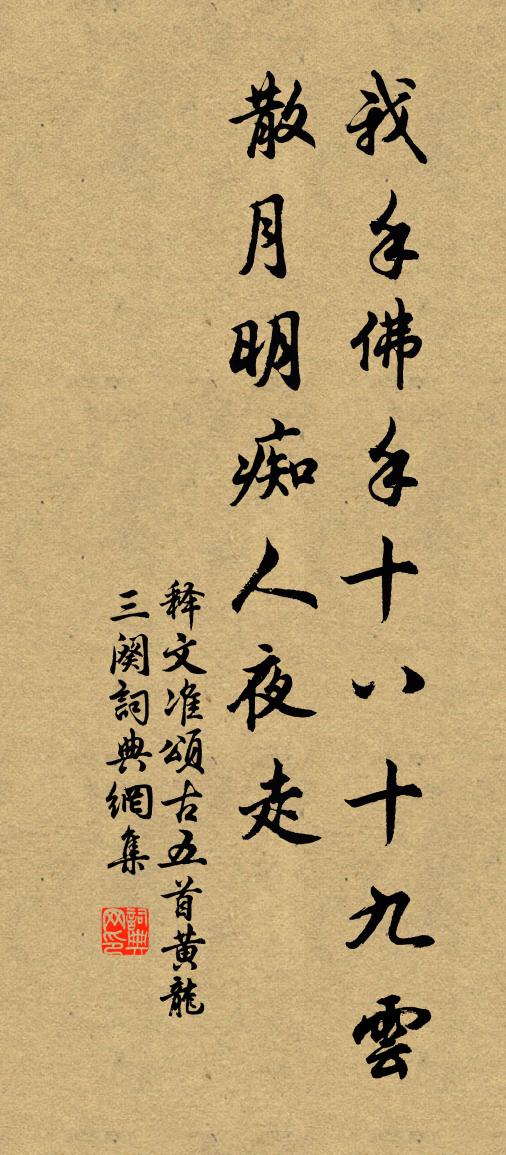 我手佛手十八十九雲
散月明痴人夜走
释文准頌古五首黄龍
三関詞典網集
詞典网印